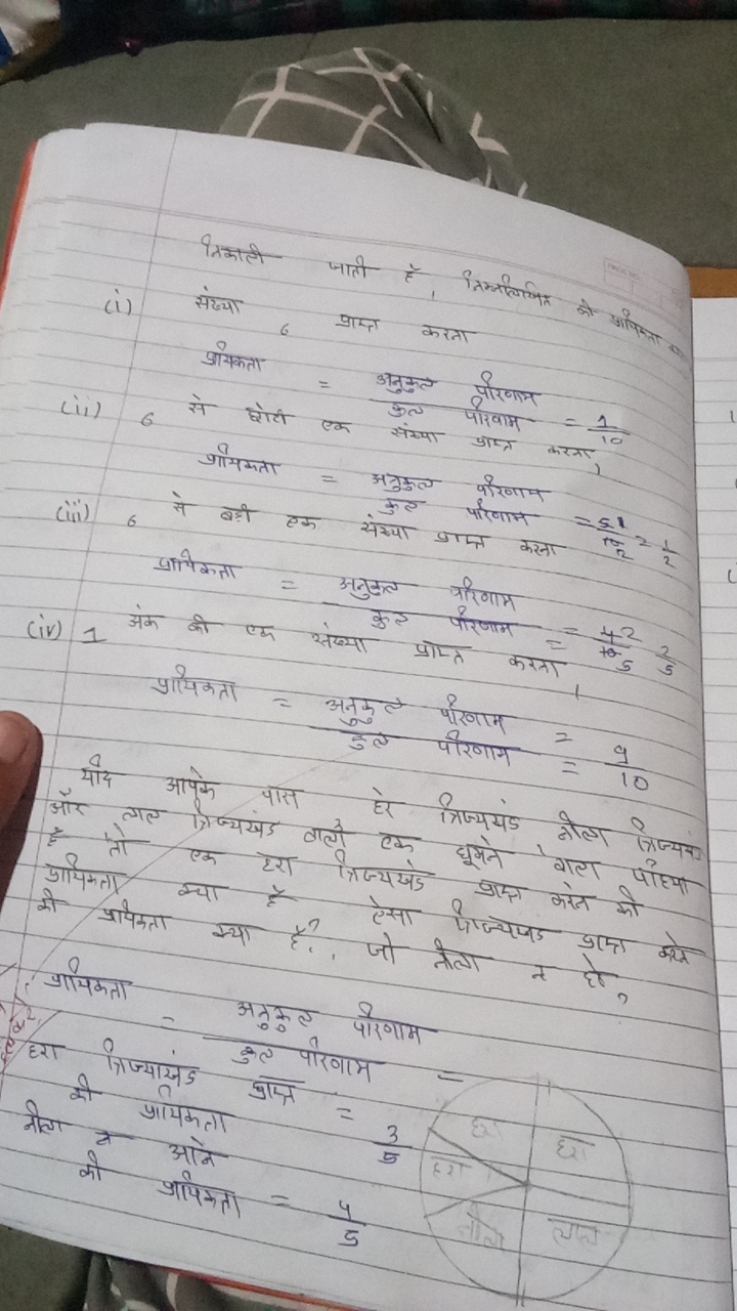 निकाली जाती है, निम्नलिखित की प्रायिकता
(i) संख्या 6 प्राप्त करना
प्रायिकता = अनुकुल परिणाम / कुल परिणाम = 1/10
(ii) 6 से छोटी एक संख्या प्राप्त करना,
प्रायिकता = अनुकुल परिणाम / कुल परिणाम = 5 1/10 2 = 1/2
(iii) 6 से बड़ी एक संख्या प्राप्त करना
प्रायिकता = अनुकुल परिणाम / कुल परिणाम = 4 2/10 5 = 2/5
(iv) 1 अंक की एक संख्या प्राप्त करना,
प्रायिकता = अनुकुल परिणाम / कुल परिणाम = 9/10
यदि आपके पास हरे त्रिज्यखंड नीला त्रिज्यखं
और लाल त्रिज्यखंड वाला एक घूमने वाला पहिया
है तो एक हरा त्रिज्यखंड प्राप्त करने की
प्रायिकता क्या है ऐसा त्रिज्यखंड प्राप्त करने
की प्रायिकता क्या है?, जो नीला न हो?
प्रायिकता = अनुकुल परिणाम / कुल परिणाम =
हरा त्रिज्याखंड प्राप्त
की प्रायिकता = 3/5
नीला न आने
की प्रायिकता = 4/5
हरा हरा
हरा
नीला लाल